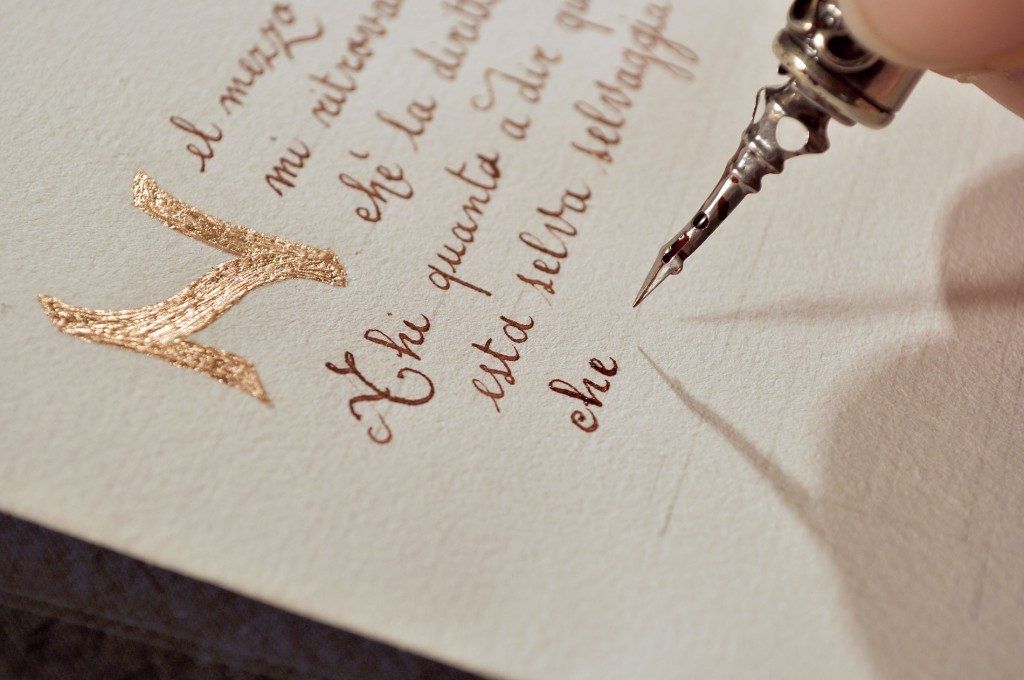 Nel mezzo
mi ritrova
ché la diritt
Ahi quanto a dir qu
esta selva selvaggia
che